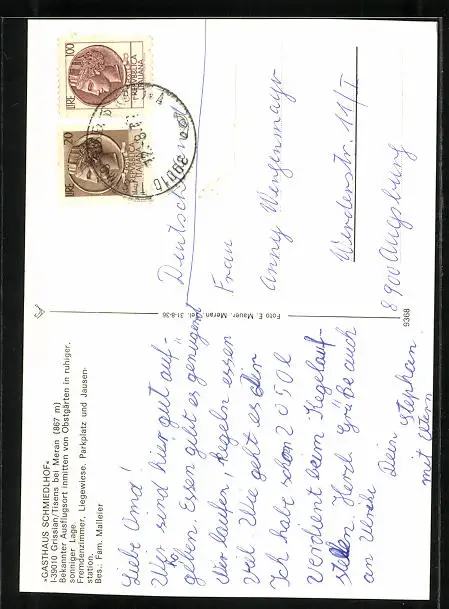 »GASTHAUS SCHMIEDLHOF«
I-39010 Grissian/Tisens bei Meran (867 m)
Bekannter Ausflugsort inmitten von Obstgärten in ruhiger,
sonniger Lage.
Fremdenzimmer, Liegewiese, Parkplatz und Jausen-
station.
Bes.: Fam. Malleier
Liebe Oma!
Wir sind hier gut auf-
geben. Essen gibt es genügend
Wir laufen, kegeln essen
viel. Wie geht es dir
Ich habe schon 2050 L
verdient beim Kegelauf-
stellen. Herzl. Grüße auch
an
Dein Stephan
mit Eltern
Foto E. Mauer, Meran Tel. 31-8-36
9368
LIRE 100
REPUBBLICA
ITALIANA
LIRE 20
REPUBBLICA
ITALIANA
39010
Deutschland
Frau
Anny Wengenmayr
Werderstr. 11/I
8900 Augsburg